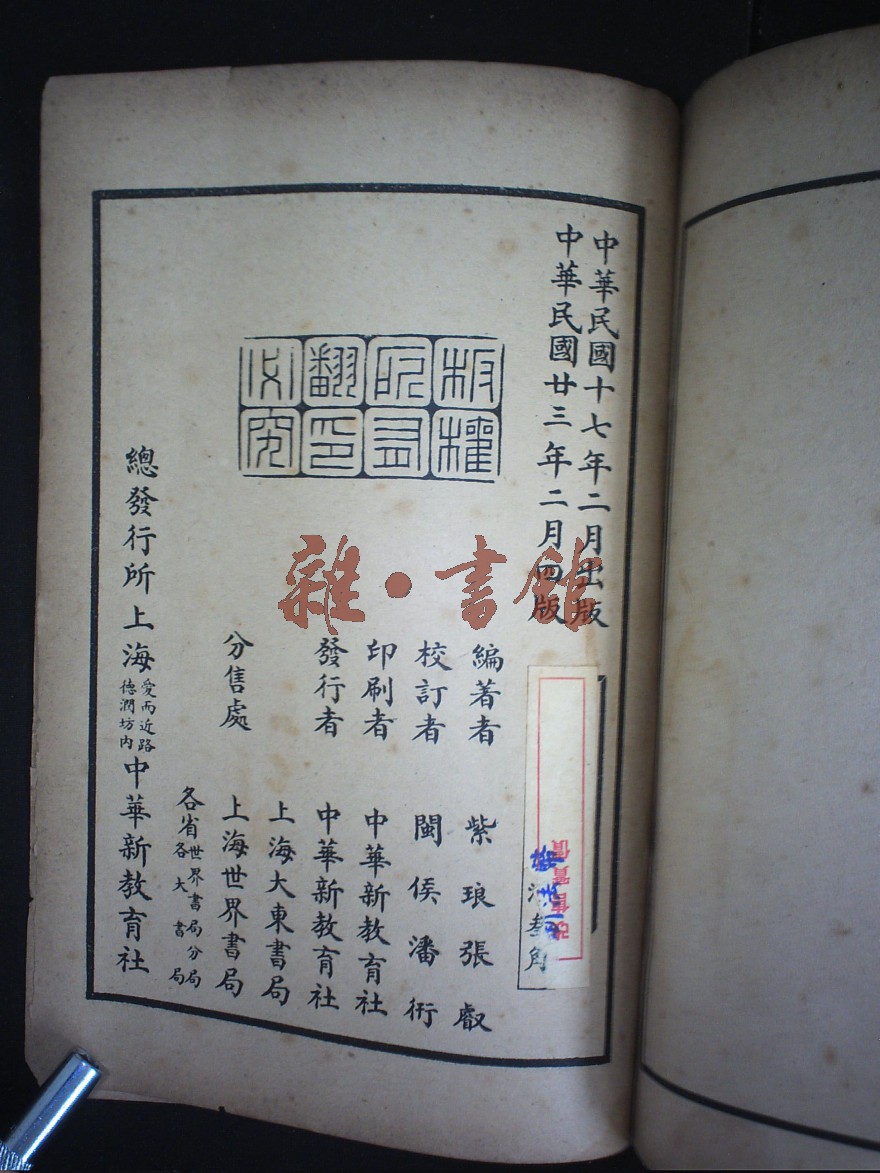 中華民國十七年二月出版
中華民國廿三年二月四版
洋叁角
編著者 紫琅張叡
校訂者 閩侯潘衍
印刷者 中華新教育社
發行者 中華新教育社
上海大東書局
分售處 上海世界書局
各省世界書局分局
各大書局
總發行所上海愛而近路德潤坊內中華新教育社
板權所有翻印必究
改售實價
雜·書館